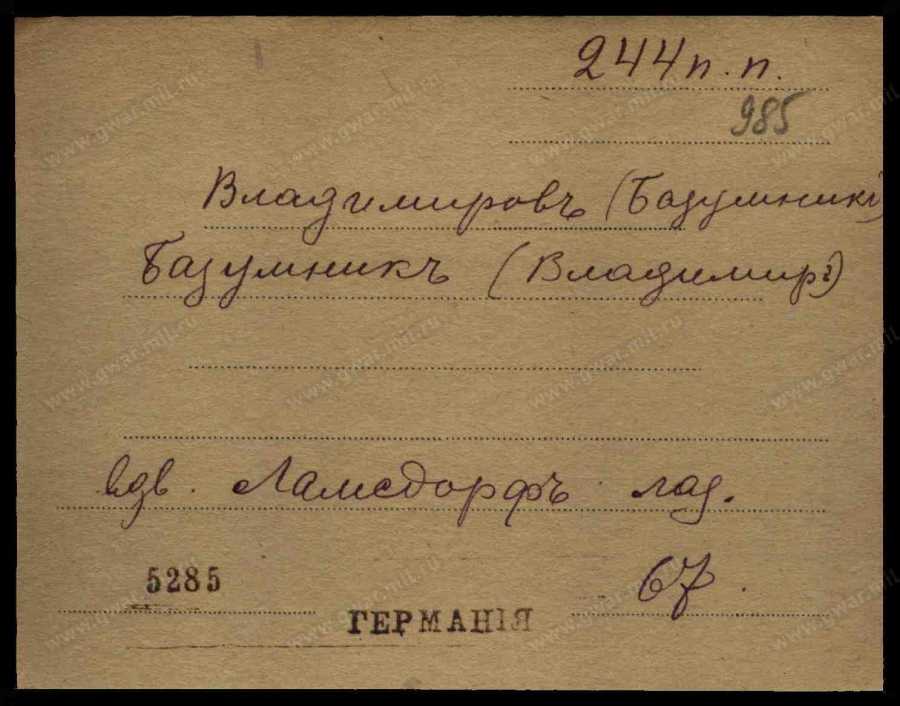 244 п. п.
985
Владимировъ (Базумникъ)
Базумникъ (Владимиръ)
Ламсдорфъ лаз.
5285
67.
ГЕРМАНІЯ
www.gwar.mil.ru